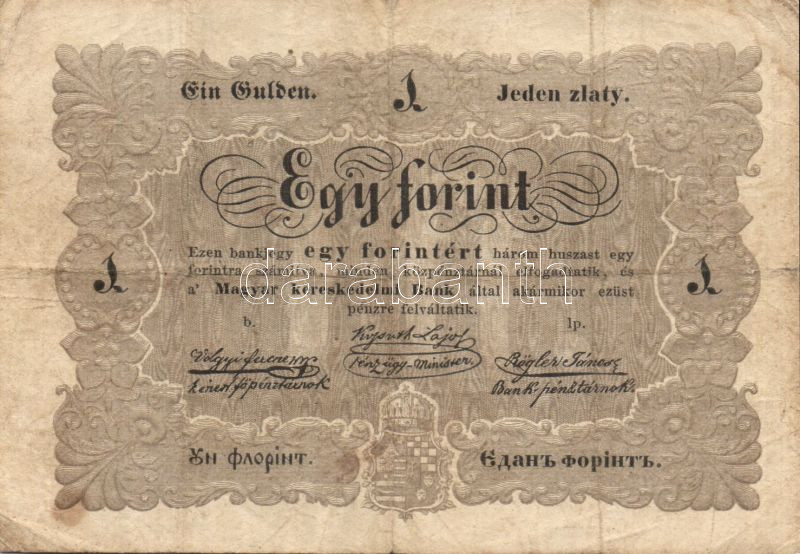 Ein Gulden. 1 Jeden zlaty.
Egy forint
Ezen bankjegy egy forintért három huszast egy
forintra számítva, minden közpénztárnál elfogadtatik, és
1 a' Magyar kereskedelmi Bank által akármikor ezüst 1
pénzre felváltatik.
b. lp.
Kossuth Lajos
Völgyi Ferencz Rögler János
pénzügy-Minister.
főpénztárnok Bank-pénztárnok.
Ун флорінт. Єданъ форінтъ.
darabanth